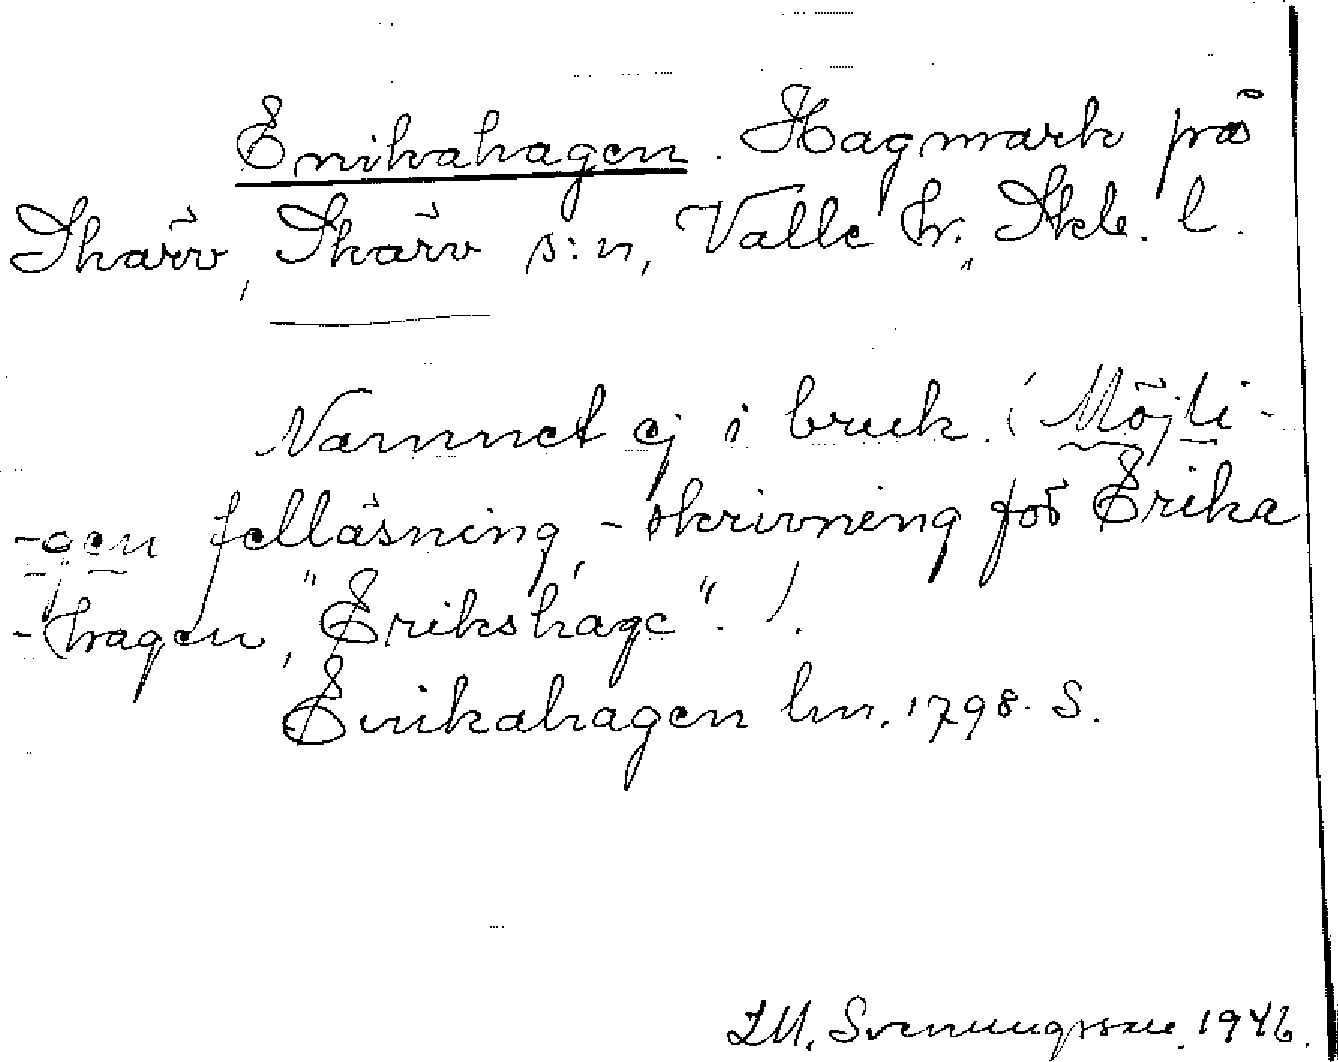 Enikahagen. Hagmark på
Skärv, Skärv s:n, Valle hr, Skb. l.
Namnet ej i bruk. (Möjli-
-gen felläsning, -skrivning för Erika
-hagen, "Erikshage".).
Enikahagen lm. 1798. S.
Svenungsson 1946.